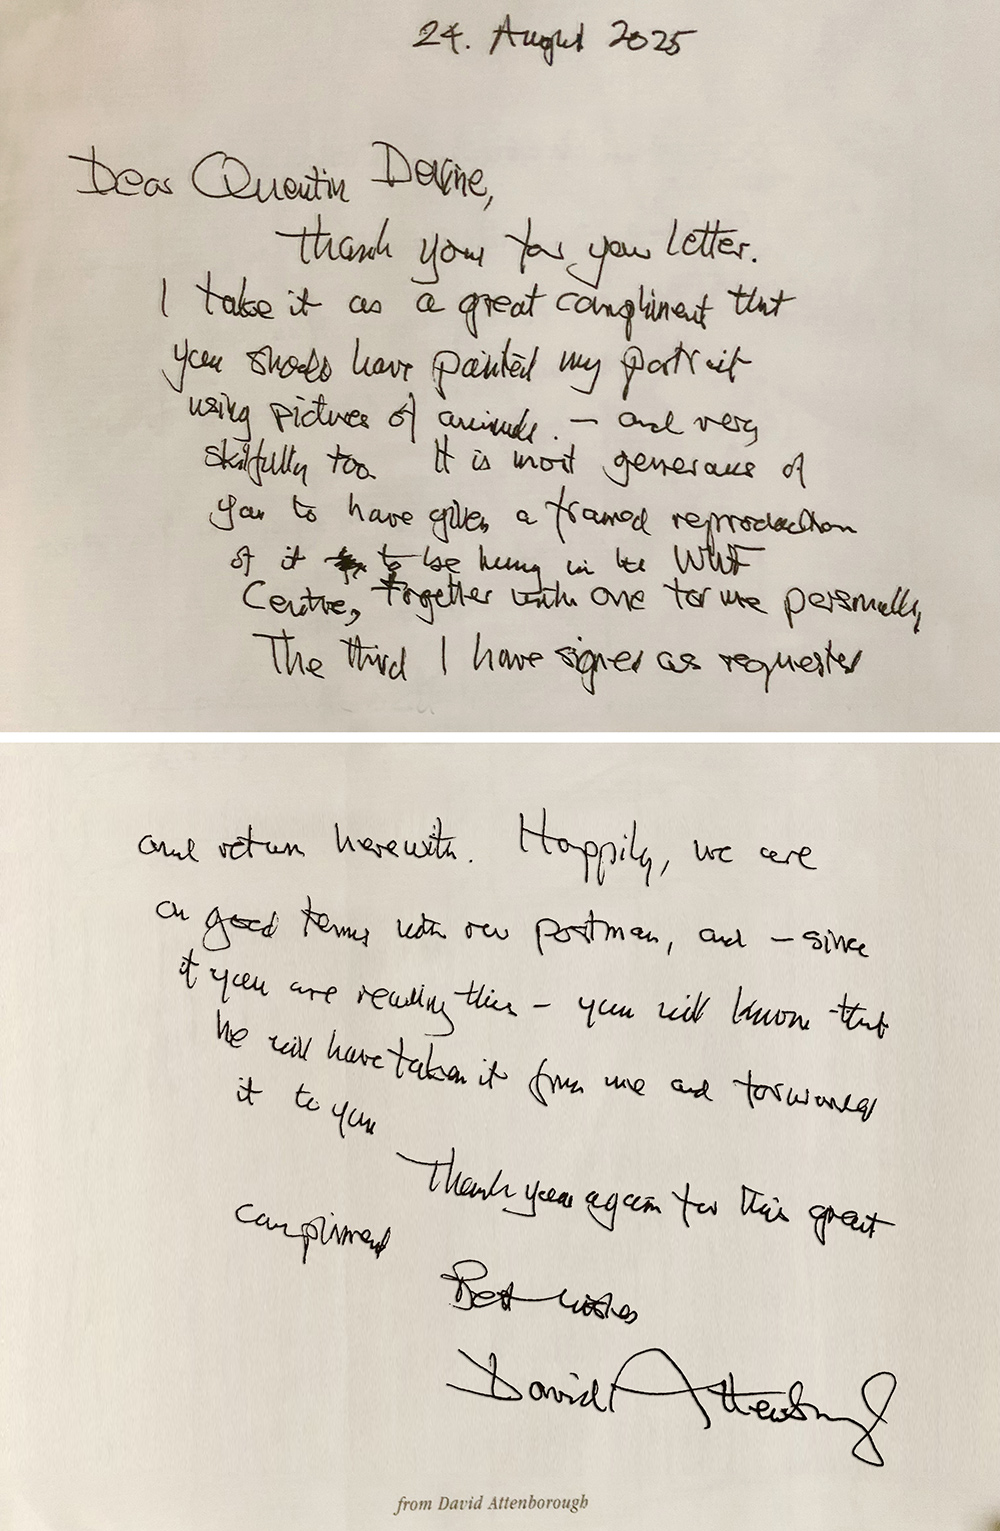 24. August 2025
Dear Quentin Devine,
Thank you for your letter.
I take it as a great compliment that
you should have painted my portrait
using pictures of animals. – and very
skilfully too. It is most generous of
you to have given a framed reproduction
of it to be hung in the WWF
Centre, together with one for me personally,
The third I have signed as requested
and return herewith. Happily, we are
on good terms with our postman, and – since
if you are reading this – you will know that
he will have taken it from me and forwarded
it to you
Thank you again for this great
compliment
Best wishes
David Attenborough
from David Attenborough